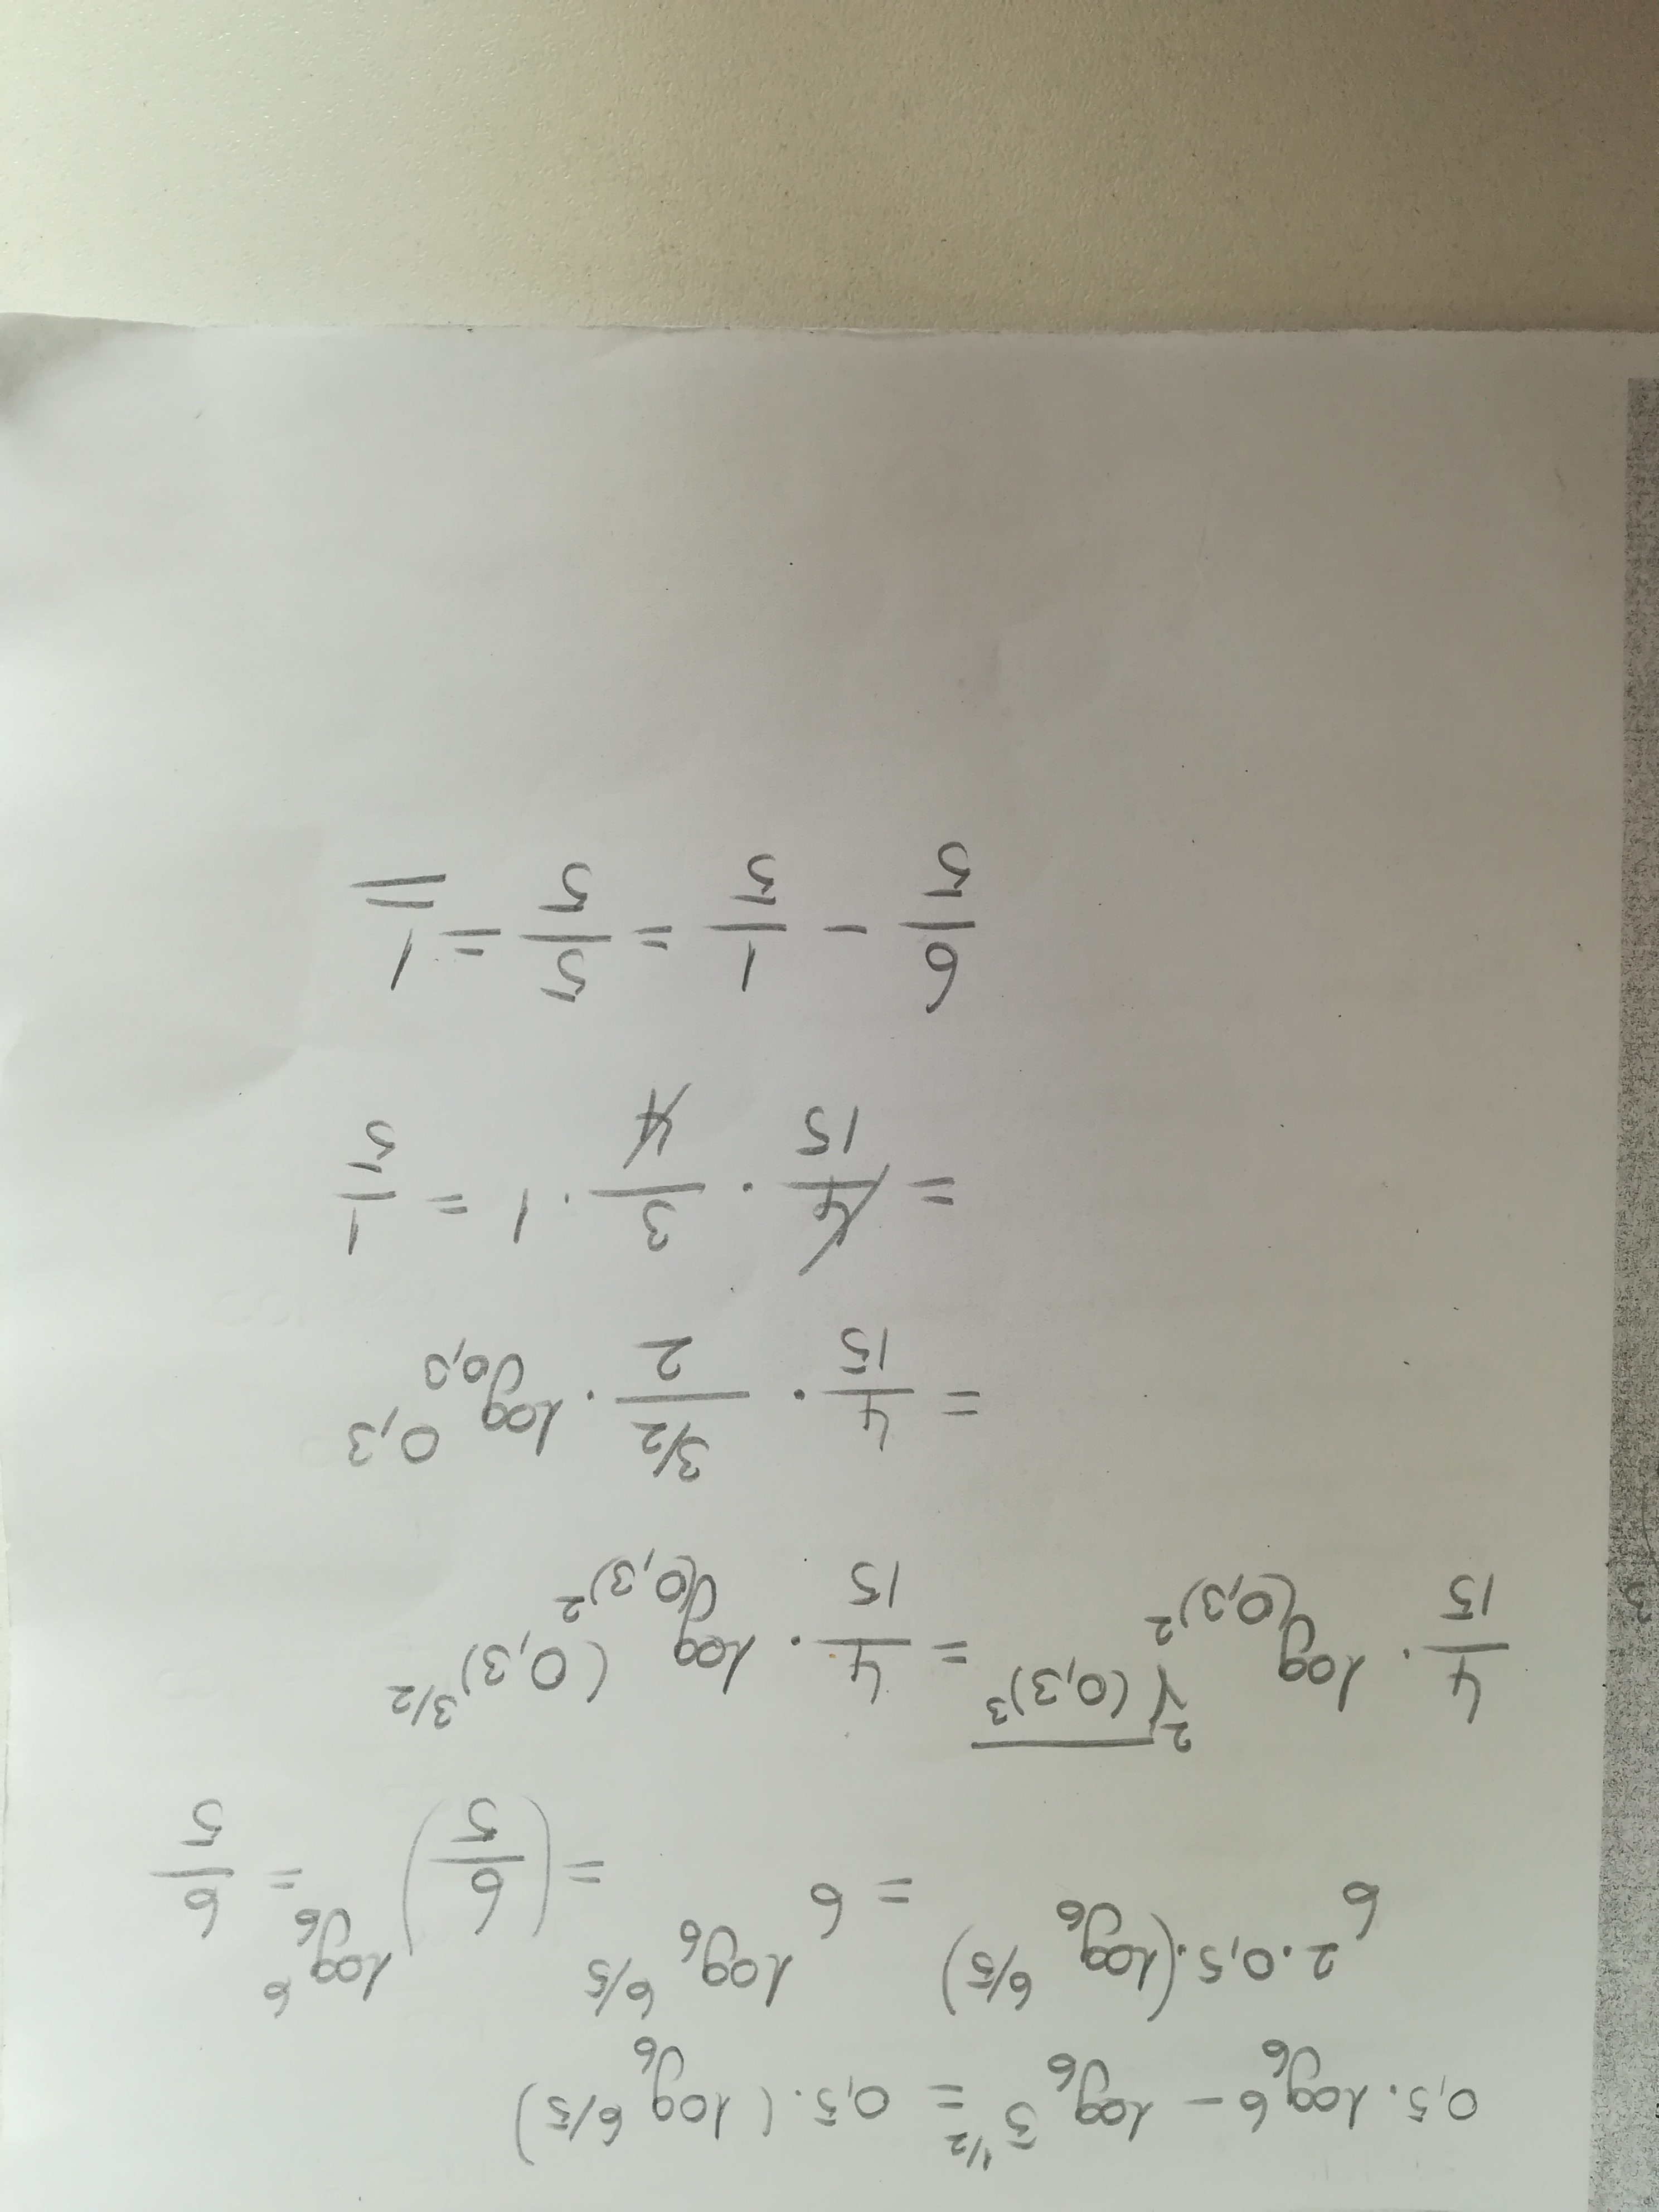 0,5 · log₆ 6 − log₆ 5^{1/2} = 0,5 · (log₆ 6/5)
6^{2·0,5·(log₆ 6/5)} = 6^{log₆ 6/5} = (6/5)^{log₆ 6} = 6/5
4/15 · log_{(0,3)²} ²√(0,3)³ = 4/15 · log_{(0,3)²} (0,3)^{3/2}
= 4/15 · (3/2)/2 · log_{0,3} 0,3
= 4/15 · 3/4 · 1 = 1/5
6/5 − 1/5 = 5/5 = 1